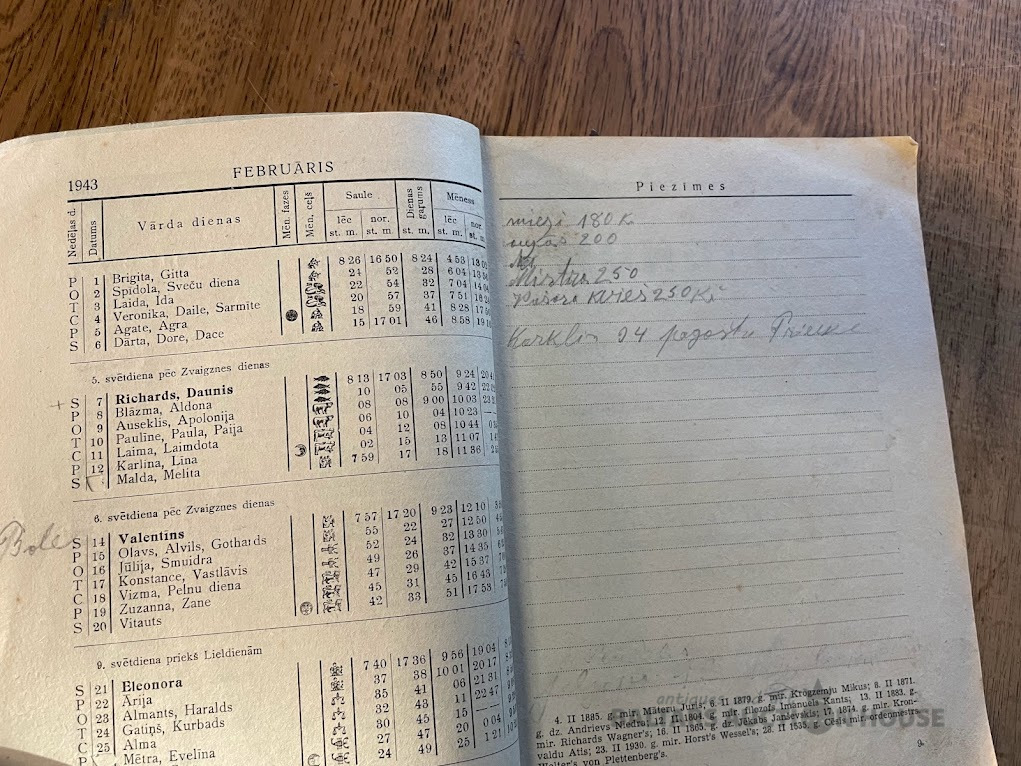 1943
FEBRUĀRIS
Nedēļas d.
Datums
Vārda dienas
Mēn. fazes
Mēn. ceļš
Saule
Dienas garums
Mēness
lēc
nor.
lēc
nor.
st. m.
st. m.
st. m.
st. m.
st. m.
P 1 Brigita, Gitta 8 26 16 50 8 24 4 53
O 2 Spīdola, Sveču diena 24 52 28 6 04
T 3 Laida, Ida 22 54 32 7 04
C 4 Veronika, Daile, Sarmīte 20 57 37 7 51
P 5 Agate, Agra 18 59 41 8 28
S 6 Dārta, Dore, Dace 15 17 01 46 8 58
5. svētdiena pēc Zvaigznes dienas
S 7 Richards, Daunis 8 13 17 03 8 50 9 24
P 8 Blāzma, Aldona 10 05 55 9 42
O 9 Auseklis, Apolonija 08 08 9 00 10 03
T 10 Paulīne, Paula, Paija 06 10 04 10 23
C 11 Laima, Laimdota 04 12 08 10 44
P 12 Karlīna, Līna 02 15 13 11 07
S Malda, Melita 7 59 17 18 11 36
6. svētdiena pēc Zvaigznes dienas
Bole
S 14 Valentīns 7 57 17 20 9 23 12 10
P 15 Olavs, Alvils, Gothards 55 22 27 12 50
O 16 Jūlija, Smuidra 52 24 32 13 30
T 17 Konstance, Vastlāvis 49 26 37 14 35
C 18 Vizma, Pelnu diena 47 29 42 15 37
P 19 Zuzanna, Zane 45 31 45 16 43
S 20 Vitauts 42 33 51 17 53
9. svētdiena priekš Lieldienām
S 21 Eleonora 7 40 17 36 9 56 19 04
P 22 Ārija 37 38 10 01 20 17
O 23 Almants, Haralds 35 41 06 21 31
T 24 Gatiņš, Kurbads 32 43 11 22 47
C 25 Alma 30 45 15
P Mētra, Evelīna 27 47 20 0 04
24 49 25 1 21
Piezīmes
mieži 180 K
auzas 200
Mistrs 250
kvies 250 K
Karklin 94 pagasta
4. II 1885. g. mir. Māteru Juris; 6. II 1879. g. mir. Krogzemju Mikus; 8. II 1871.
g. dz. Andrievs Niedra; 12. II 1804. g. mir. filozofs Imanuels Kants; 13. II 1883. g.
mir. Richards Wagner's; 16. II 1865. g. dz. Jēkabs Janševskis; 17. II 1874. g. mir. Kron-
valdu Atis; 23. II 1930. g. mir. Horst's Wessel's; 28. II 1535. g. Cēsīs mir. ordeņmestrs
Walter's von Plettenberg's.
9
antiques
BALTIC HOUSE